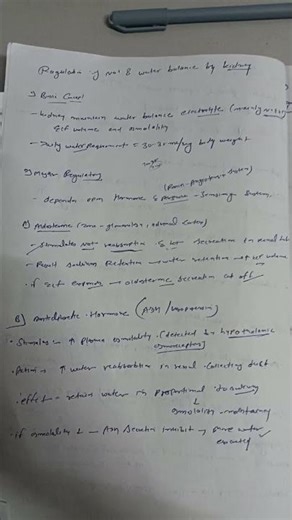 Regulation of Na+ & water balance by kidney
1) Basic Concept
- kidney maintain water balance electrolyte (mainly Na+)
ECF volume and osmolality
- Daily water requirement = 30-35 ml/kg body weight
2) Major Regulatory
- depends upon Hormone & Pressure - Sensing System
A) Aldosterone (zona-glomerulosa, adrenal cortex)
- Stimulates Na+ reabsorption & secretion in renal tubule
- Result Sodium Retention → water retention → ↑ ECF volume
- if ECF expands → aldosterone secretion cut off
B) Antidiuretic Hormone (ADH/Vasopressin)
• Stimulus = ↑ plasma osmolality (detected by hypothalamic
osmoreceptors)
• Action = ↑ water reabsorption in renal collecting duct
• effect = retain water in proportional to sodium
↓
osmolality maintained
• if osmolality ↓ — ADH secretion inhibit → pure water
excreted